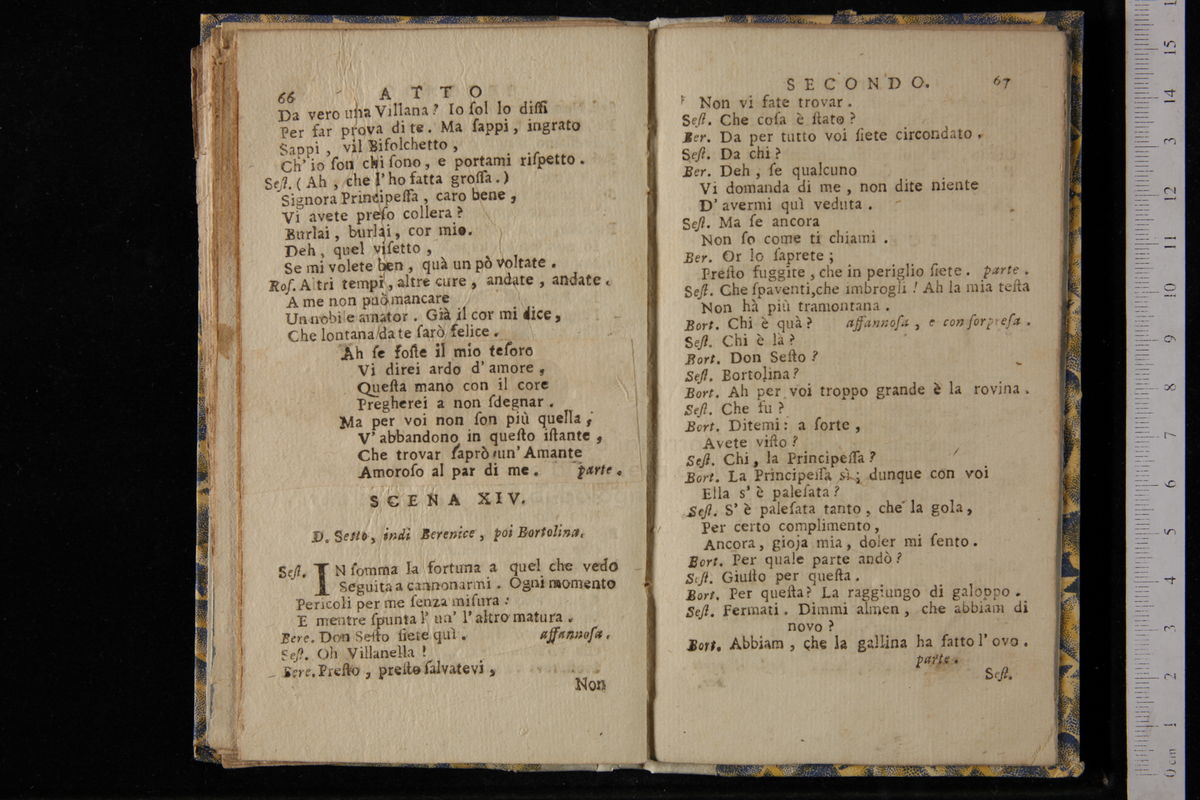 66 ATTO
Da vero una Villana? Io ſol lo diſſi
Per far prova di te. Ma ſappi, ingrato
Sappi, vil Bifolchetto,
Ch'io ſon chi ſono, e portami riſpetto.
Seſt. (Ah, che l'ho fatta groſſa.)
Signora Principeſſa, caro bene,
Vi avete preſo collera?
Burlai, burlai, cor mio.
Deh, quel viſetto,
Se mi volete ben, quà un pò voltate.
Roſ. Altri tempi, altre cure, andate, andate.
A me non può mancare
Un nobile amator. Già il cor mi dice,
Che lontana da te ſarò felice.
Ah ſe foſte il mio teſoro
Vi direi ardo d'amore,
Queſta mano con il core
Pregherei a non ſdegnar.
Ma per voi non ſon più quella,
V'abbandono in queſto iſtante,
Che trovar ſaprò un'Amante
Amoroſo al par di me. parte.
SCENA XIV.
D. Seſto, indi Berenice, poi Bortolina.
Seſt. IN ſomma la fortuna a quel che vedo
Seguita a cannonarmi. Ogni momento
Pericoli per me ſenza miſura:
E mentre ſpunta l'un' l'altro matura.
Bere. Don Seſto ſiete quì. affannoſa.
Seſt. Oh Villanella!
Bere. Preſto, preſto ſalvatevi,
Non
SECONDO. 67
Non vi fate trovar.
Seſt. Che coſa è ſtato?
Ber. Da per tutto voi ſiete circondato.
Seſt. Da chi?
Ber. Deh, ſe qualcuno
Vi domanda di me, non dite niente
D'avermi quì veduta.
Seſt. Ma ſe ancora
Non ſo come ti chiami.
Ber. Or lo ſaprete;
Preſto fuggite, che in periglio ſiete. parte.
Seſt. Che ſpaventi, che imbrogli! Ah la mia teſta
Non hà più tramontana.
Bort. Chi è quà? affannoſa, e con ſorpreſa.
Seſt. Chi è là?
Bort. Don Seſto?
Seſt. Bortolina?
Bort. Ah per voi troppo grande è la rovina.
Seſt. Che fu?
Bort. Ditemi: a ſorte,
Avete viſto?
Seſt. Chi, la Principeſſa?
Bort. La Principeſſa sì; dunque con voi
Ella s'è paleſata?
Seſt. S'è paleſata tanto, che la gola,
Per certo complimento,
Ancora, gioja mia, doler mi ſento.
Bort. Per quale parte andò?
Seſt. Giuſto per queſta.
Bort. Per queſta? La raggiungo di galoppo.
Seſt. Fermati. Dimmi almen, che abbiam di
novo?
Bort. Abbiam, che la gallina ha fatto l'ovo.
parte.
Seſt.
0 cm 1 2 3 4 5 6 7 8 9 10 11 12 3 14 15